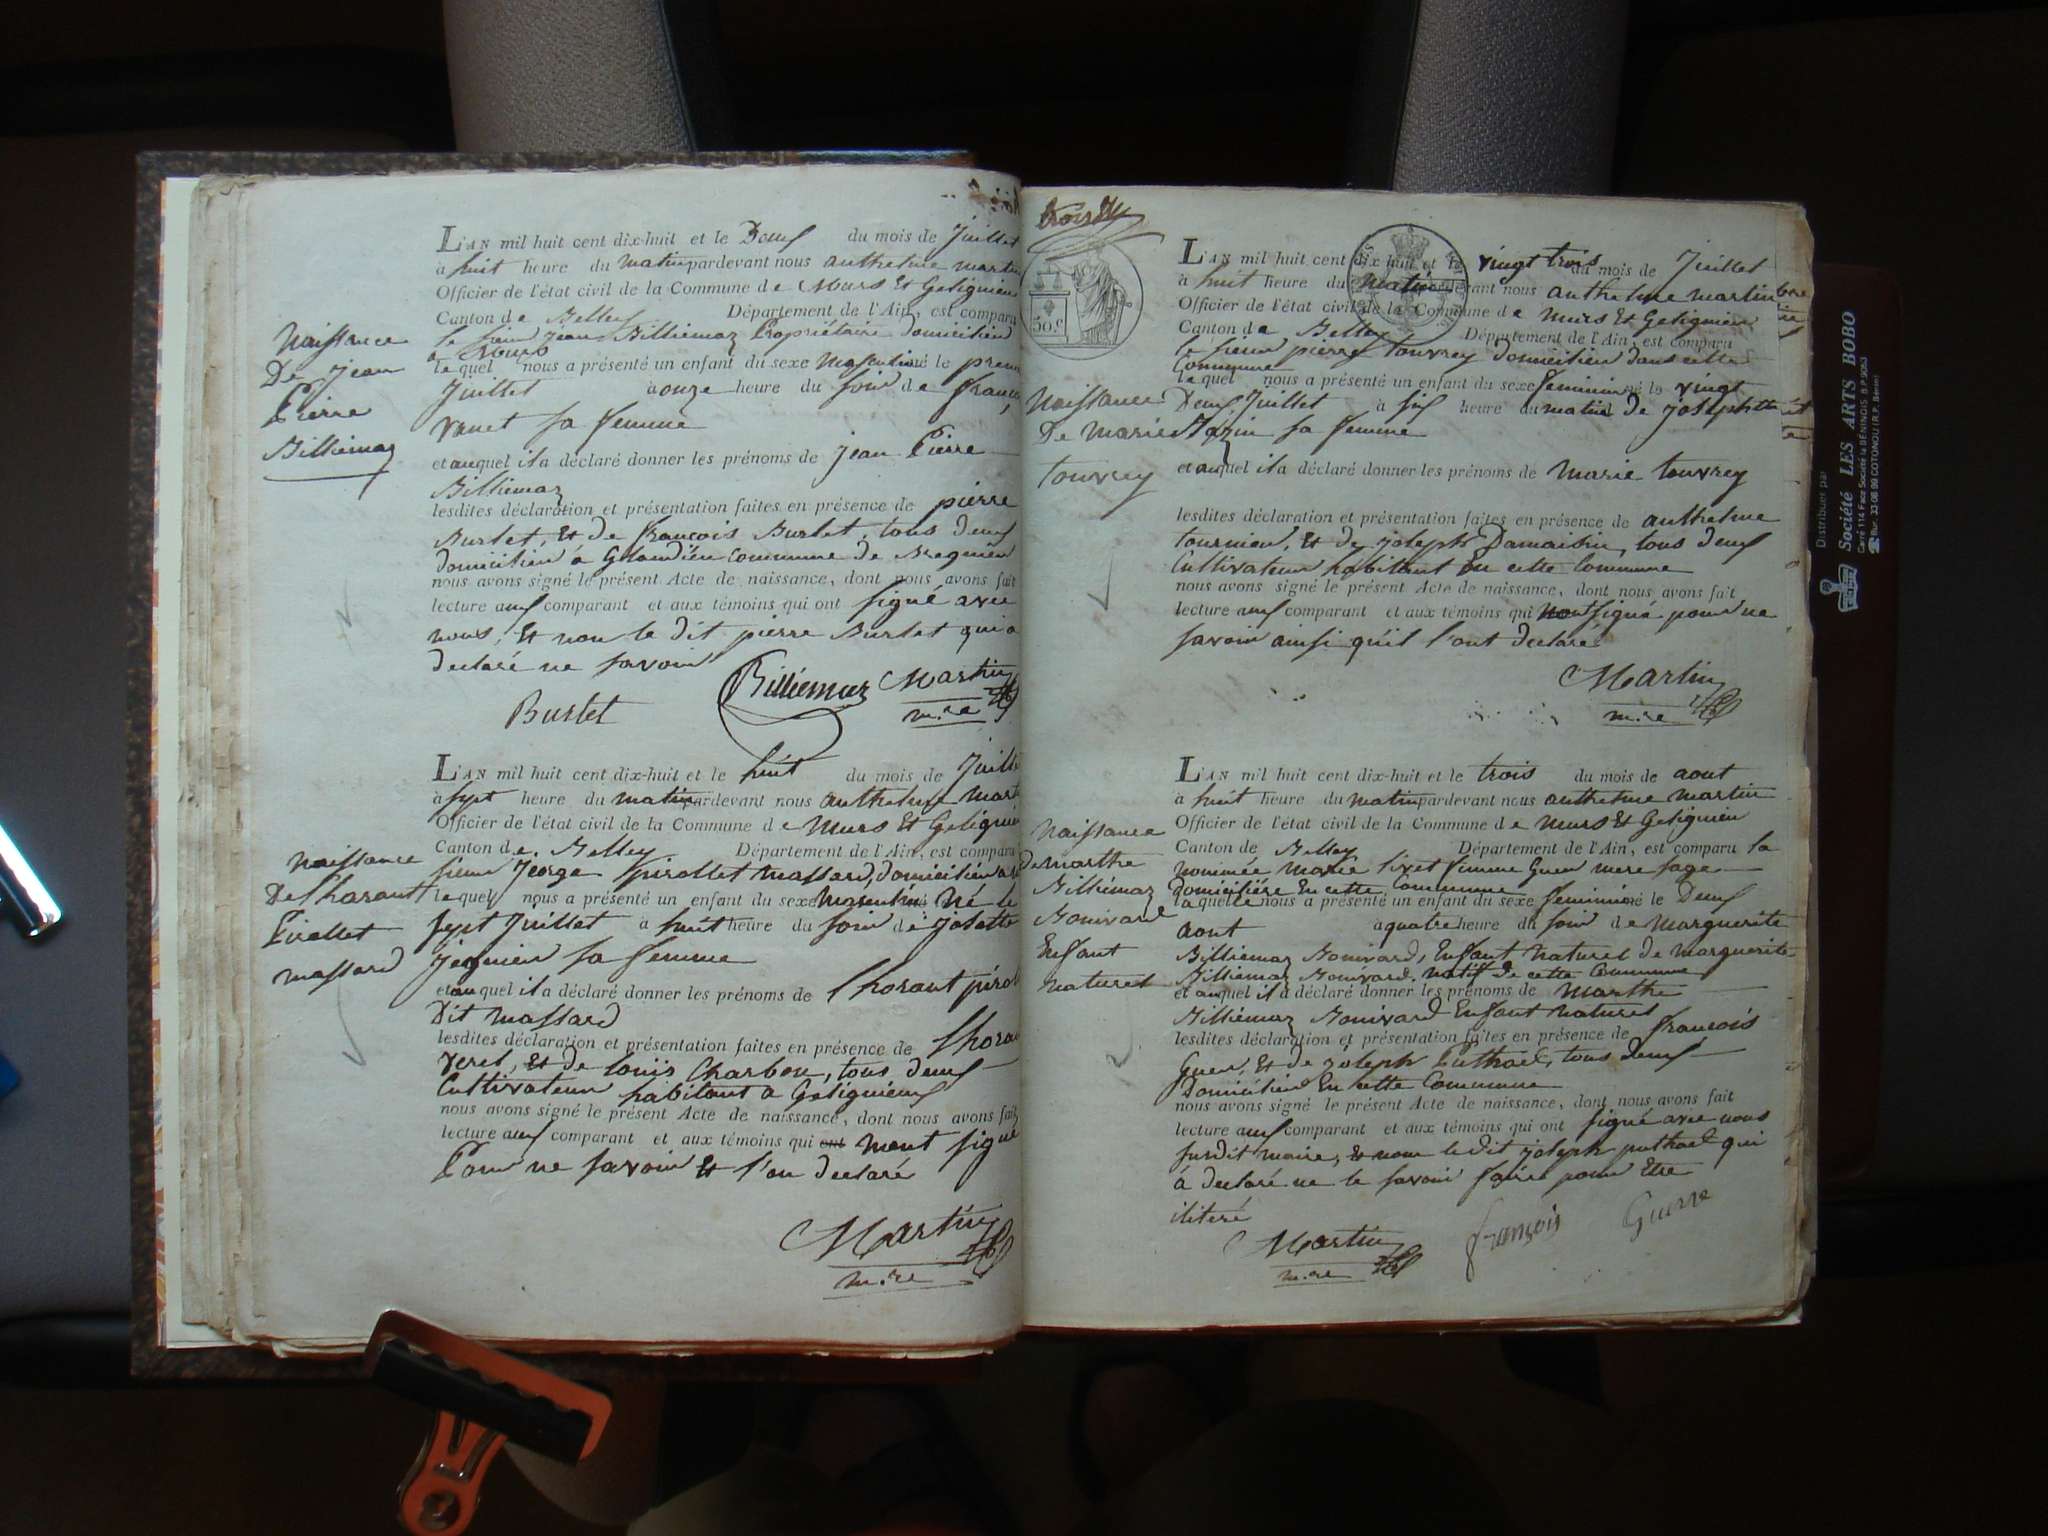 Naissance
De jean
Pierre
Billiemaz
L'AN mil huit cent dix-huit et le Deux du mois de Juillet
à huit heure du matin pardevant nous anthelme martin
Officier de l'état civil de la Commune de Murs Et Gelignieux
Canton de Belley Département de l'Ain, est comparu
le sieur jean Billiemaz Propriétaire domicilien
a Murs
lequel nous a présenté un enfant du sexe masculin né le premi
Juillet à onze heure du soir de françoi
sa femme
et auquel il a déclaré donner les prénoms de jean Pierre
Billiemaz
lesdites déclaration et présentation faites en présence de pierre
Burlet, Et de françois Burlet, tous deux
domicilien à Glandieu commune de Bregnieu
nous avons signé le présent Acte de naissance, dont nous avons fait
lecture aux comparant et aux témoins qui ont signé avec
nous, Et non le dit pierre Burlet qui a
declaré ne savoir
Billiemaz Martin
Burlet m.re
Naissance
De lhorant
Pirollet
massard
L'AN mil huit cent dix-huit et le huit du mois de Juille
à sept heure du matin pardevant nous anthelme mart
Officier de l'état civil de la Commune de Murs Et Gelignieu
Canton de Belley Département de l'Ain, est comparu
sieur George pirollet massard, domicilien
lequel nous a présenté un enfant du sexe masculin Né le
sept Juillet à huit heure du soir de josette
sa femme
et au quel il a déclaré donner les prénoms de lhorant pirol
Dit massard
lesdites déclaration et présentation faites en présence de lhoran
veret, Et de louis Charbon, tous deux
Cultivateur habitant a Gelignieux
nous avons signé le présent Acte de naissance, dont nous avons fait
lecture aux comparant et aux témoins qui ont nont signé
Pour ne savoir Et l'on declaré
Martin
m.re
trois
50.c
Naissance
De marie
touvrey
L'AN mil huit cent dix huit et le vingt trois du mois de Juillet
à huit heure du matin pardevant nous anthelme martin
Officier de l'état civil de la Commune de Murs Et Gelignieu
Canton de Belley Département de l'Ain, est comparu
le sieur pierre touvrey domicilien dans cette
Commune
lequel nous a présenté un enfant du sexe feminin né le vingt
Deux Juillet à six heure du matin de josephte
sa femme
et auquel il a déclaré donner les prénoms de marie touvrey
lesdites déclaration et présentation faites en présence de anthelme
tournier, Et de joseph Damaisin, tous deux
Cultivateur habitant en cette Commune
nous avons signé le présent Acte de naissance, dont nous avons fait
lecture aux comparant et aux témoins qui nont signé pour ne
savoir ainsi qu'il l'ont declaré
Martin
m.re
Naissance
De marthe
Billiemaz
Bonivard
Enfant
naturel
L'AN mil huit cent dix-huit et le trois du mois de aout
à huit heure du matin pardevant nous anthelme martin
Officier de l'état civil de la Commune de Murs Et Gelignieu
Canton de Belley Département de l'Ain, est comparu la
nommée marie livet femme Guer mere sage
Domiciliére En cette Commune
laquelle nous a présenté un enfant du sexe feminin né le Deux
aout à quatre heure du soir de marguerite
Billiemaz Bonivard, Enfant Naturel de marguerite
Billiemaz Bonivard, natif de cette Commune
et auquel il a déclaré donner les prénoms de marthe
Billiémaz Bonivard Enfant naturel
lesdites déclaration et présentation faites en présence de françois
Guer, Et de joseph Puthod, tous deux
Domicilien En cette Commune
nous avons signé le présent Acte de naissance, dont nous avons fait
lecture aux comparant et aux témoins qui ont signé avec nous
susdit maire, Et non le dit joseph puthod qui
à declaré ne le savoir faire pour Etre
iliteré
Martin françois Guerre
m.re
Distribuer par
Société LES ARTS BOBO
Carré 114 Face Société la BENINOIS B.P. 9053
Bur. 33 08 99 COTONOU (R.P. Bénin)